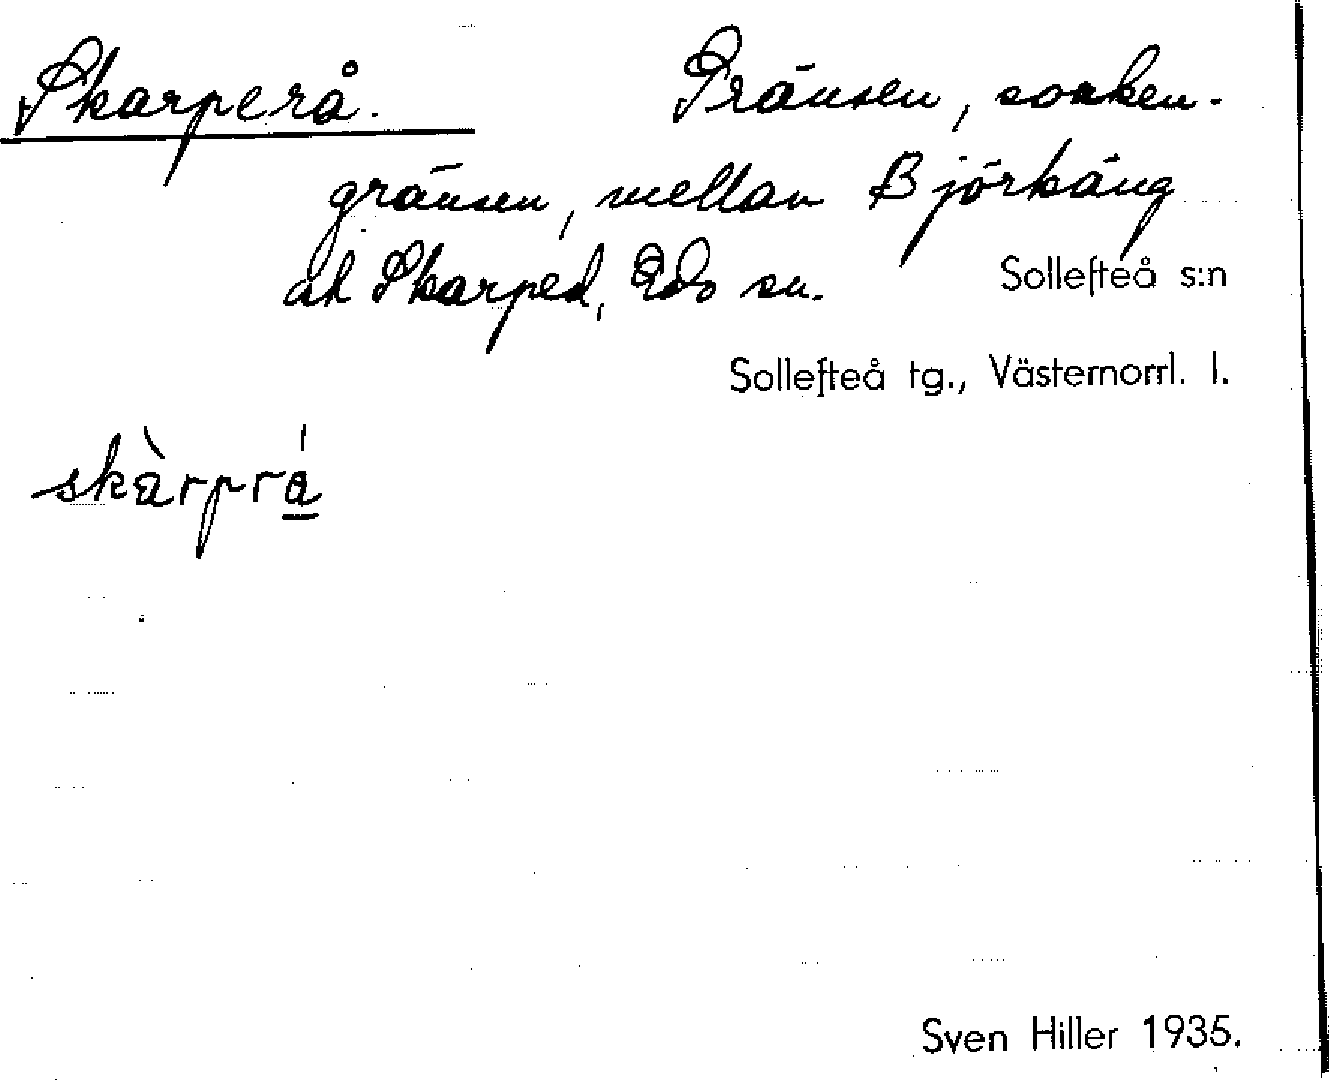 Skarperå. Gränsen, socken-
gränsen, mellan Björkäng
och Skarped, Eds sn. Sollefteå s:n
Sollefteå tg., Västernorrl. l.
skàrprá
Sven Hiller 1935.